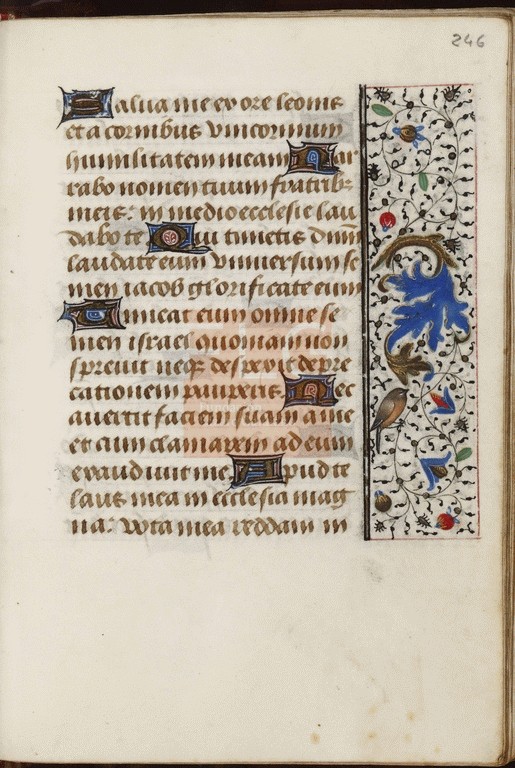 246
Salua me ex ore leonis
et a cornibus vnicornium
humilitatem meam Nar
rabo nomen tuum fratribz
meis: in medio ecclesie lau
dabo te Qui timetis dnm
laudate eum vniuersum se
men iacob glorificate eum
Timeat eum omne se
men israel quoniam non
spreuit neqz despexit depre
cationem pauperis Nec
auertit faciem suam a me
et cum clamarem ad eum
exaudiuit me Apud te
laus mea in ecclesia mag
na: vota mea reddam in